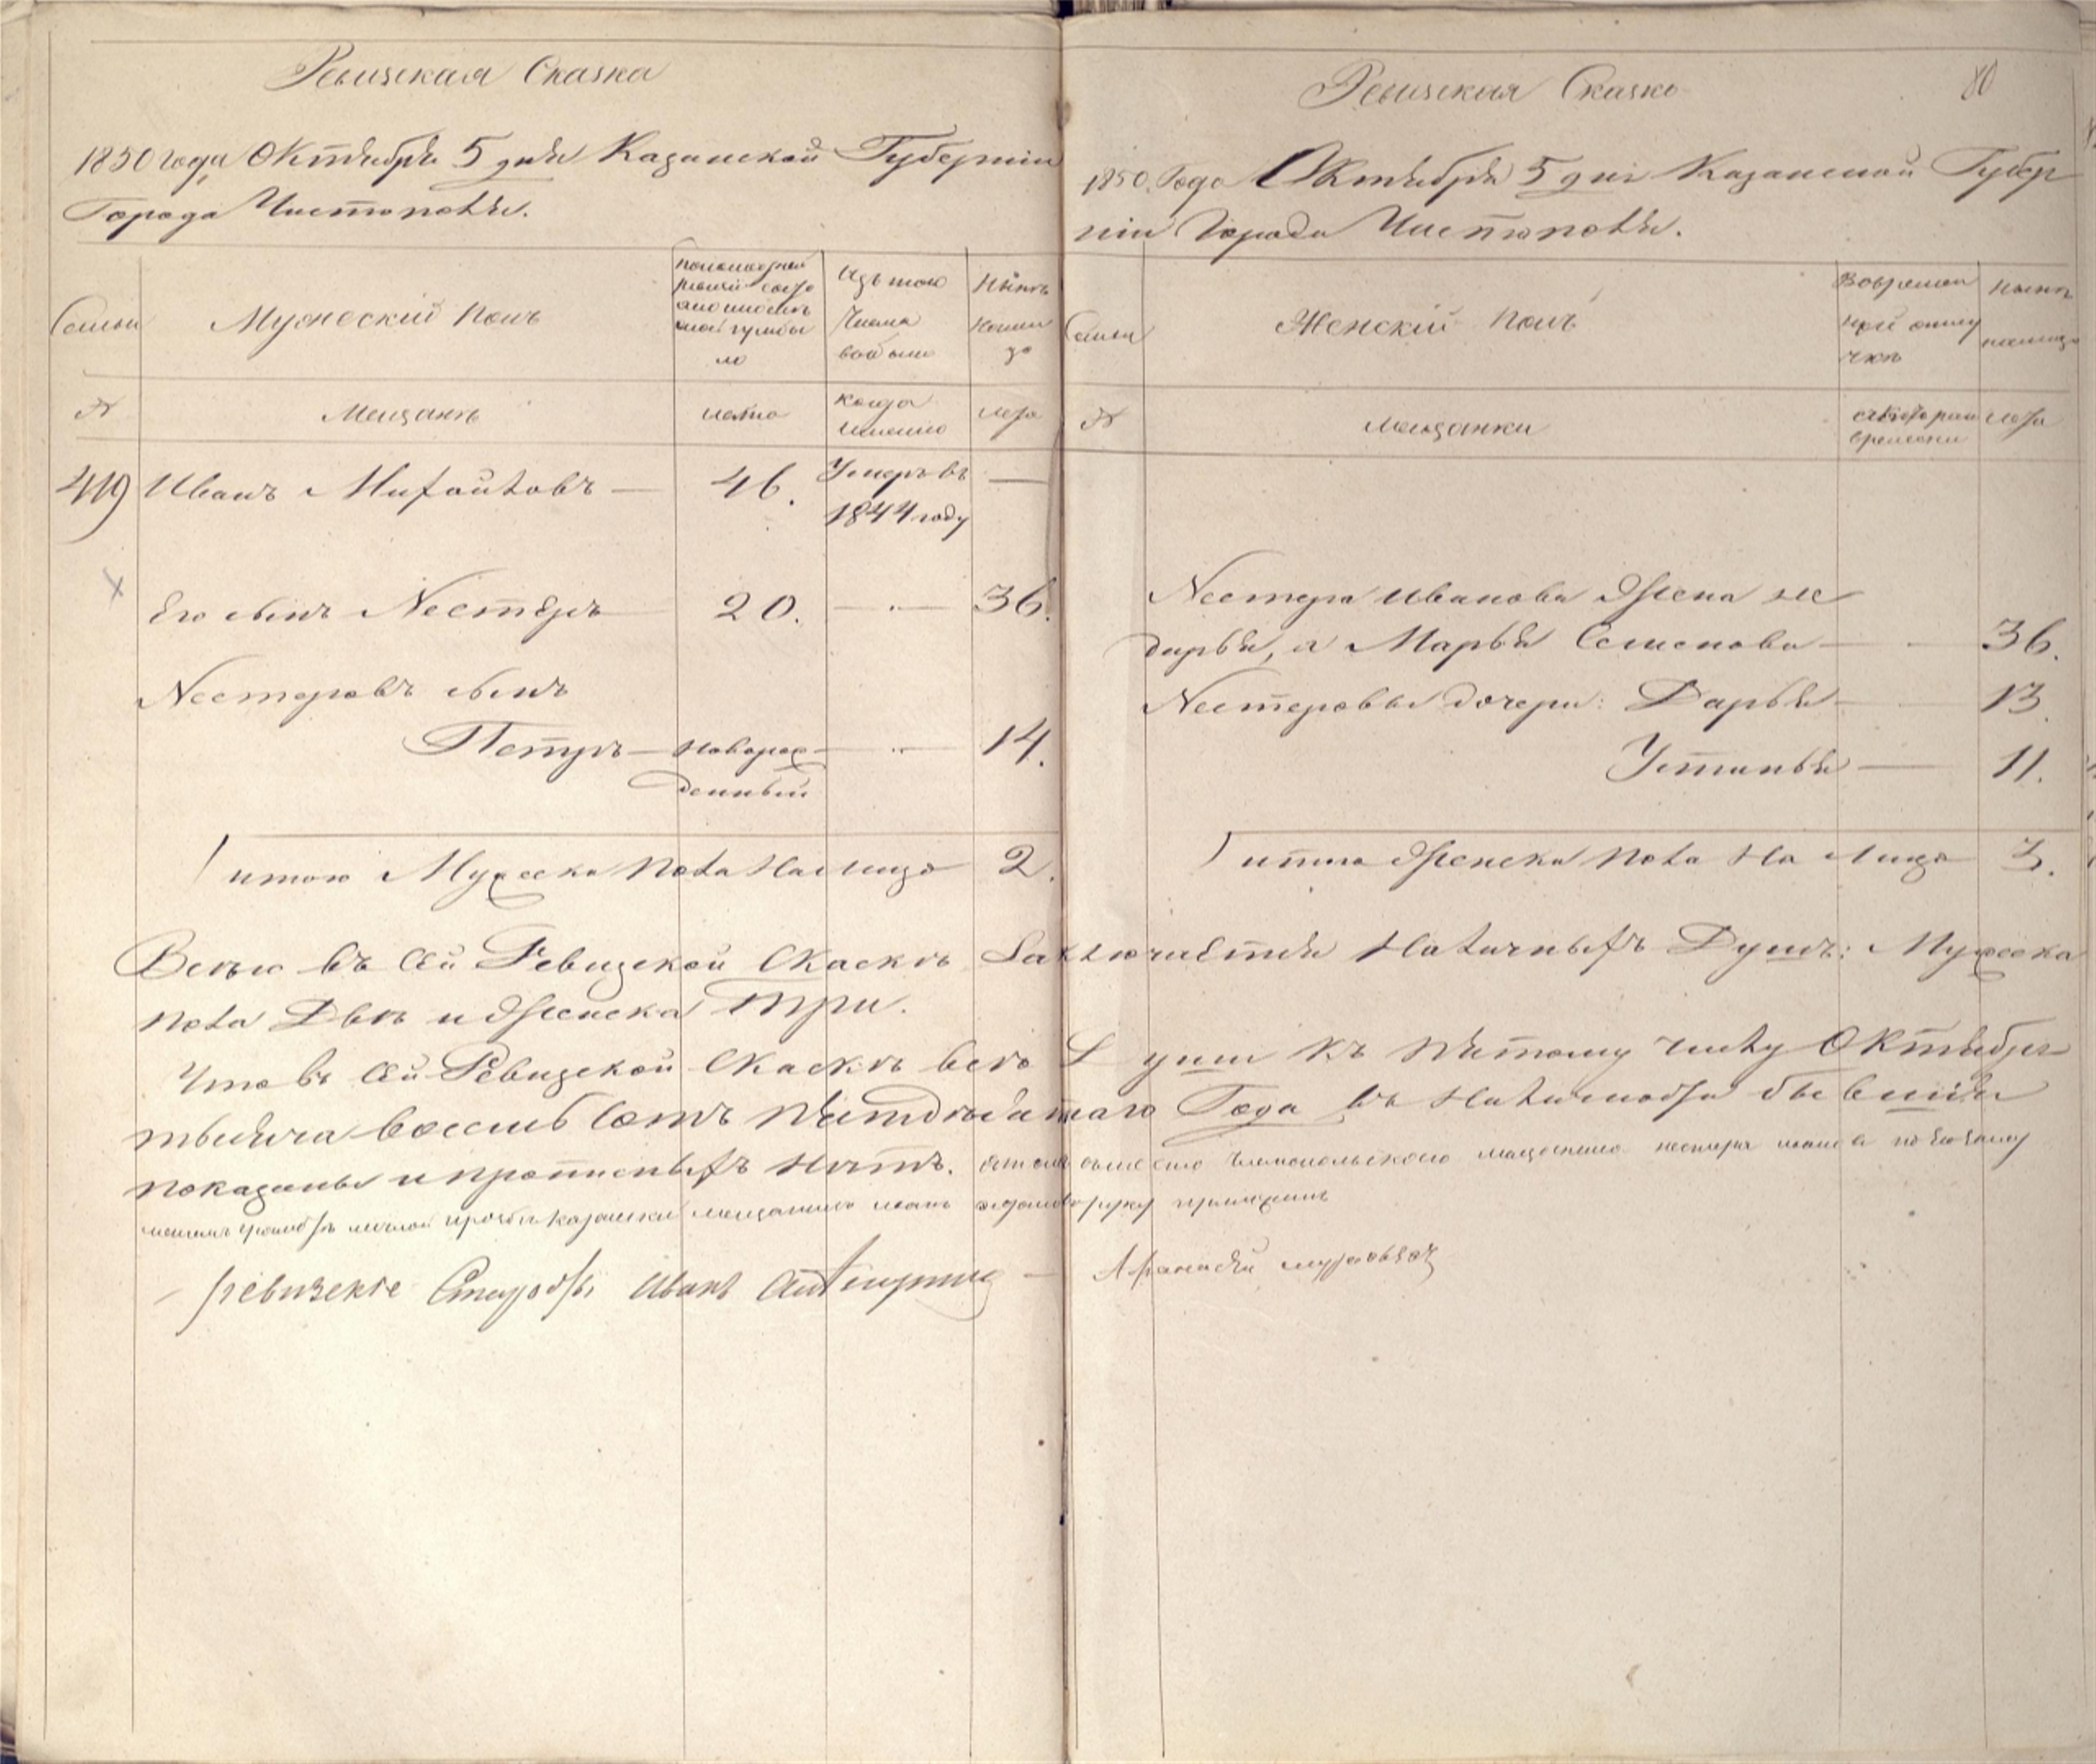 Ревизская Сказка
1850 года Октября 5 дня Казанской Губернiи
Города Чистополя.
Семьи
Мужескiй полъ
По последней
ревизiи состо
яло и после
оной прибы
ло
Изъ того
Числа
выбыло
Нынѣ
налии
цо
№
Мещанѣ
лета
когда
именно
лета
419 Иванъ Михайловъ — 46. Умеръ въ —
1844 году
Его сынъ Нестеръ 20. — 36.
Нестеровъ сынъ
Петръ — новорож — 14.
денный
итого Мужеска пола На лицо 2.
Ревизская Сказка
80
1850 Года Октября 5 дня Казанской Губер
нiи Города Чистополя.
Семьи
Женскiй полъ
Во времян
ной отлу
чкѣ
Нынѣ
налицо
№
мещанки
съ котораго
времени
лета
Нестера Иванова Жена не
дарья, а Марья Семенова — 36.
Нестеровы дочери: Дарья — 13.
Устинья — 11.
итого Женска пола На лицо 3.
Всего въ Сей Ревизской Скаскѣ Заключается Наличныхъ Душъ: Мужеска
пола Двѣ и Женска Три.
Что въ Сей Ревизской Скаскѣ все Души къ пятому числу Октября
тысяча восемь сотъ пятдесятаго Года въ Наличности бывшiя
показаны и прописныхъ нѣтъ.
чистопольского мещенина нестера
Иванъ руку приложилъ
ревизские Иванъ
Афанасей